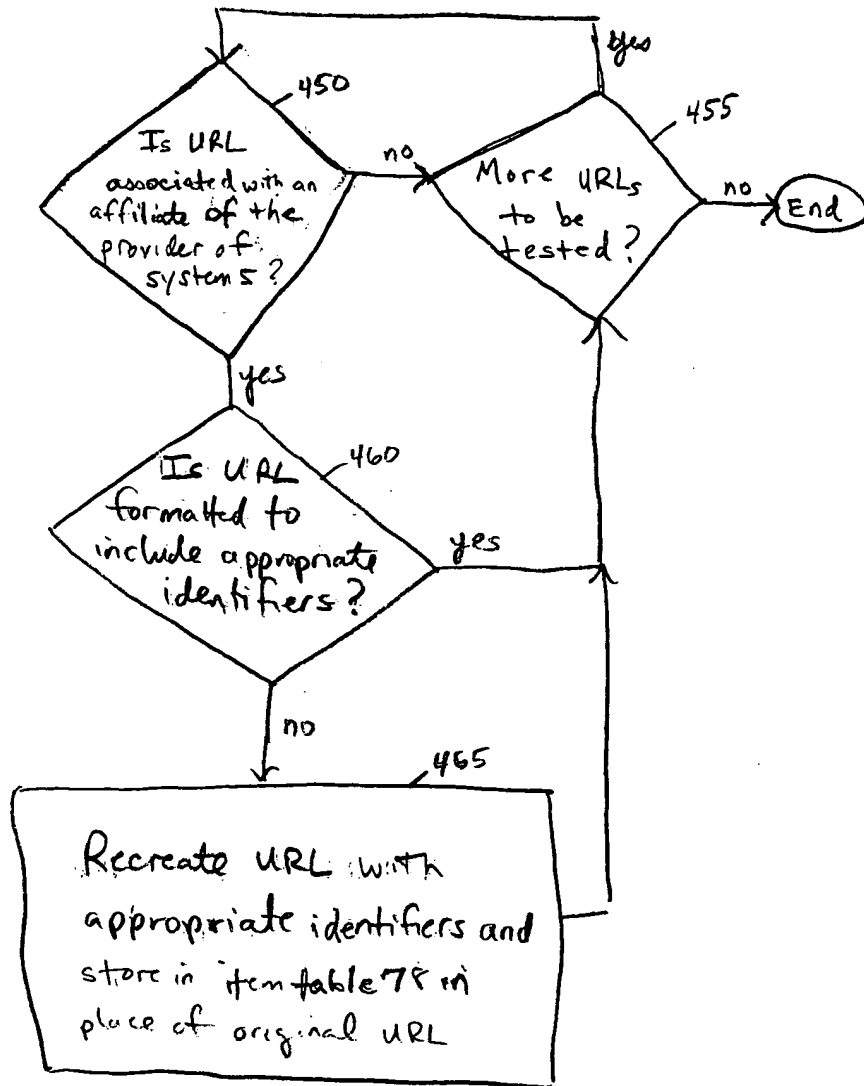 yes
450
455
Is URL
associated with an
affiliate of the
provider of
system 5?
no
More URLs
to be
tested?
no
End
yes
460
Is URL
formatted to
include appropriate
identifiers?
yes
no
465
Recreate URL with
appropriate identifiers and
store in item table 78 in
place of original URL